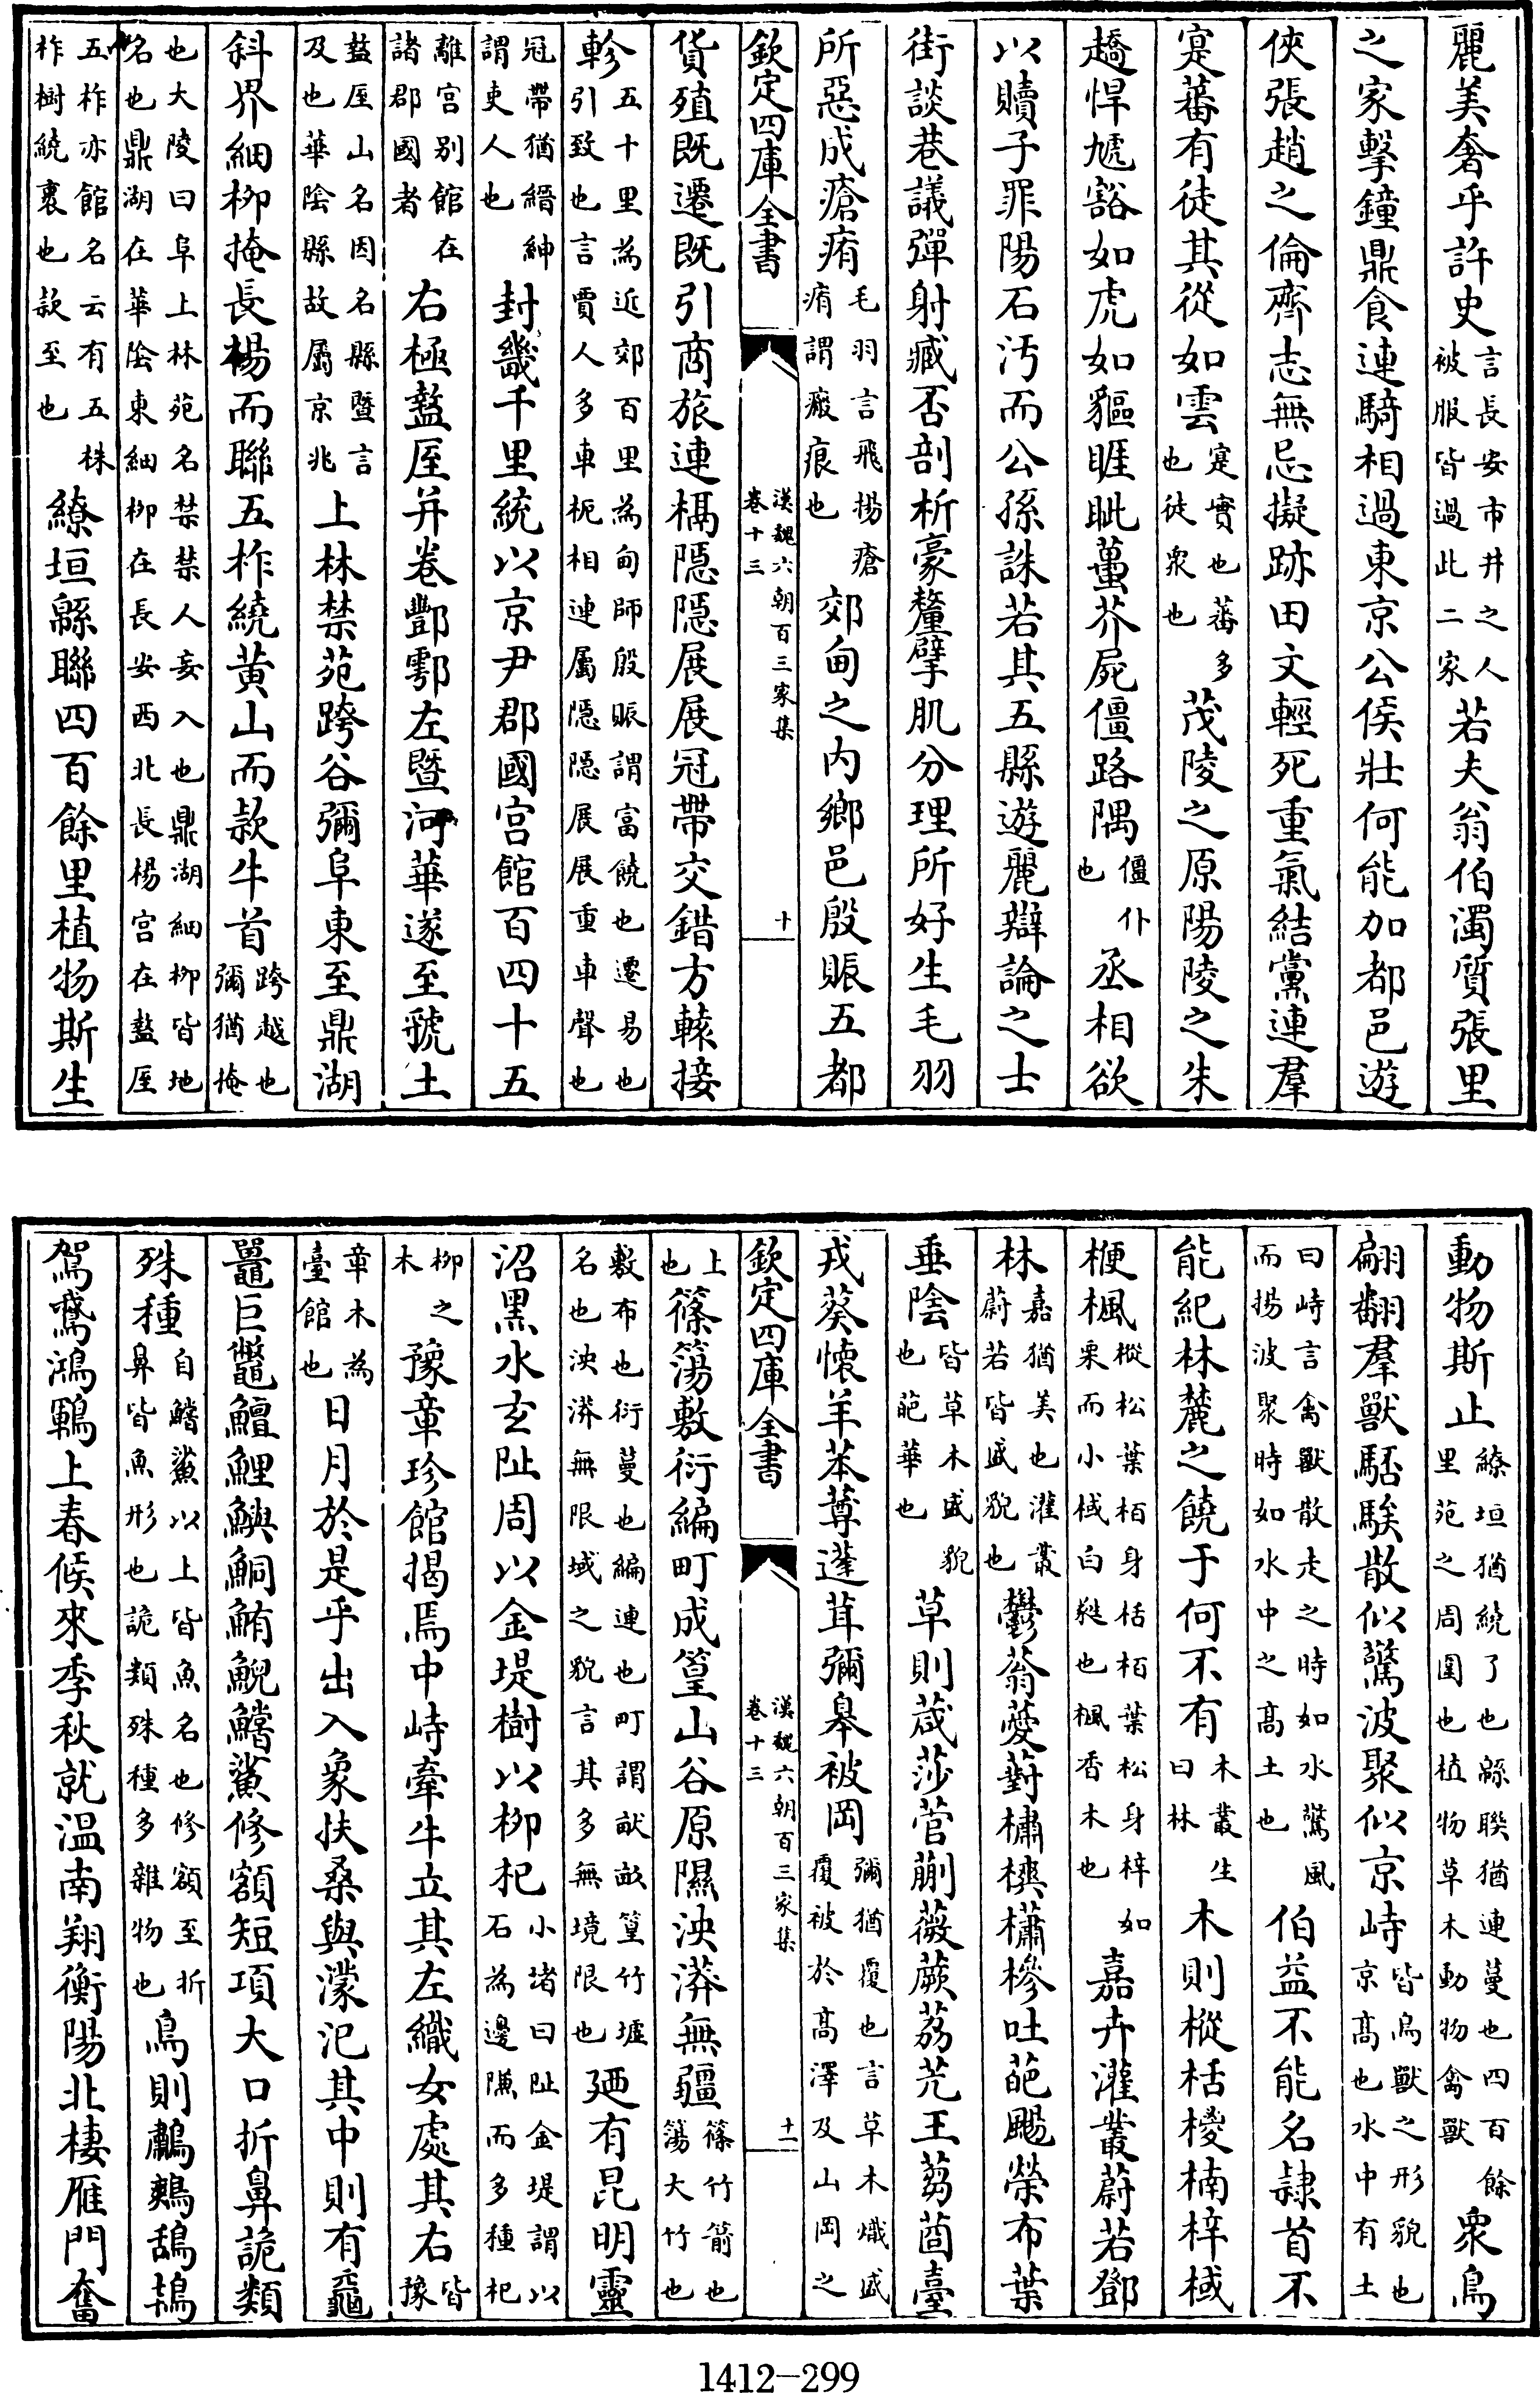 麗美奢乎許史言長安市井之人被服皆過此二家若夫翁伯濁質張里
之家擊鐘鼎食連騎相過東京公侯壯何能加都邑遊
俠張趙之倫齊志無忌擬跡田文輕死重氣結黨連羣
寔蕃有徒其從如雲寔實也蕃多也徒衆也茂陵之原陽陵之朱
趫悍虓豁如虎如貙睚眦蠆芥屍僵路隅僵仆也丞相欲
以贖子罪陽石汚而公孫誅若其五縣遊麗辯論之士
街談巷議彈射臧否剖析豪釐擘肌分理所好生毛羽
所惡成瘡痏毛羽言飛揚瘡痏謂瘢痕也郊甸之内鄉邑殷賑五都
欽定四庫全書
漢魏六朝百三家集
卷十三
十
貨殖既遷既引商旅連槅隱隱展展冠帶交錯方轅接
軫五十里為近郊百里為甸師殷賑謂富饒也遷易也引致也言賈人多車枙相連屬隱隱展展重車聲也
冠帶猶縉紳謂吏人也封畿千里統以京尹郡國宫館百四十五
離宫别館在諸郡國者右極盩厔并卷酆鄠左暨河華遂至虢土
盩厔山名因名縣暨言及也華陰縣故屬京兆上林禁苑跨谷彌阜東至鼎湖
斜界細栁掩長楊而聯五柞繞黄山而款牛首跨越也彌猶掩
也大陵曰阜上林苑名禁禁人妄入也鼎湖細栁皆地名也鼎湖在華陰東細栁在長安西北長楊宫在盩厔
五柞亦館名云有五株柞樹繞裹也款至也繚垣緜聯四百餘里植物斯生
動物斯止繚垣猶繞了也緜聯猶連蔓也四百餘里苑之周圍也植物草木動物禽獸衆鳥
翩翻羣獸駓騃散似驚波聚似京峙皆鳥獸之形貌也京髙也水中有土
曰峙言禽獸散走之時如水驚風而揚波聚時如水中之髙土也伯益不能名隷首不
能紀林麓之饒于何不有木叢生曰林木則樅栝椶楠梓棫
楩楓樅松葉栢身栝栢葉松身梓如栗而小棫白蕤也楓香木也嘉卉灌叢蔚若鄧
林嘉猶美也灌叢蔚若皆盛貌也鬱蓊薆薱橚爽櫹槮吐葩颺榮布葉
垂陰皆草木盛貌也葩華也草則葴莎菅蒯薇蕨荔艽王芻莔臺
戎葵懷羊苯䔿蓬茸彌皋被岡彌猶覆也言草木熾盛覆被於髙澤及山岡之
欽定四庫全書
漢魏六朝百三家集
卷十三
十一
上也篠簜敷衍編町成篁山谷原隰泱漭無疆篠竹箭也簜大竹也
敷布也衍蔓也編連也町謂畎畝篁竹墟名也泱漭無限域之貌言其多無境限也廼有昆明靈
沼黒水玄阯周以金堤樹以栁杞小堵曰阯金堤謂以石為邊隒而多種杞
栁之木豫章珍館揭焉中峙牽牛立其左織女處其右皆豫
章木為臺館也日月於是乎出入象扶桑與濛汜其中則有黿
鼉巨鼈鱣鯉鱮鮦鮪鯢鱨鯊修額短項大口折鼻詭類
殊種自鱨鯊以上皆魚名也修額至折鼻皆魚形也詭類殊種多雜物也鳥則鷫鷞鴰鴇
鴐鵞鴻鶤上春候來季秋就溫南翔衡陽北棲雁門奮
1412-299